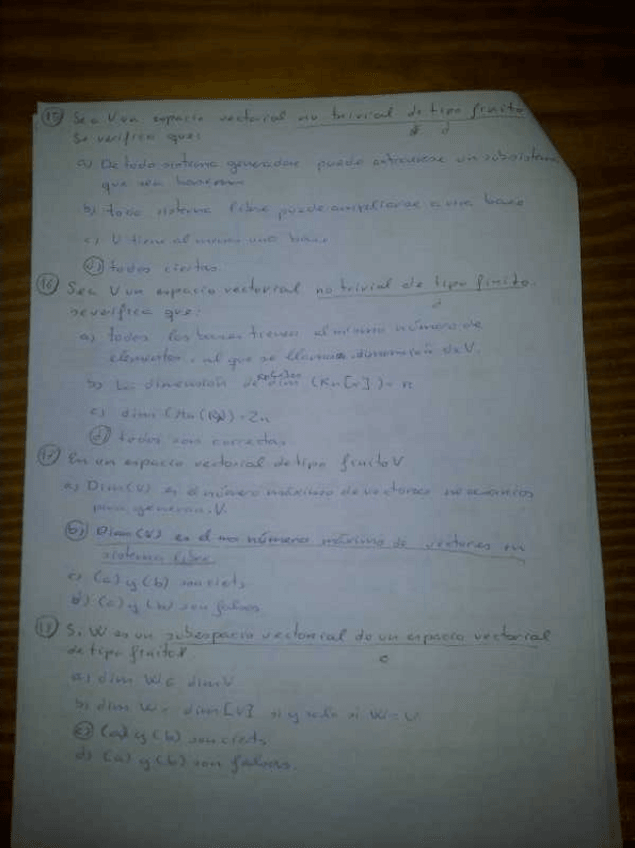 15 Sea V un espacio vectorial no trivial de tipo finito
Se verifica que:
a) De todo sistema generador puede extraerse un subsistema
que sea
b) todo sistema libre puede ampliarse a una base
c) V tiene al menos una base
d) todos ciertas
16 Sea V un espacio vectorial no trivial de tipo finito.
se verifica que:
a) todas las bases tienen el mismo número de
elementos, al que se llama dimensión de V.
b) La dimensión de dim (Kn[x]) = n
c) dim (Mn(K)) = 2n
d) todos son correctas
17 En un espacio vectorial de tipo finito V
a) Dim(V) es el número máximo de vectores necesarios
para generar V.
b) Dim(V) es el número máximo de vectores en
sistema libre
c) (a) y (b) son ciets
d) (a) y (b) son falsos
18 Si W es un subespacio vectorial de un espacio vectorial
de tipo finito
c
a) dim W ≤ dim V
b) dim W = dim [V] si y solo si W = V
c) (a) y (b) son ciets
d) (a) y (b) son falsas.